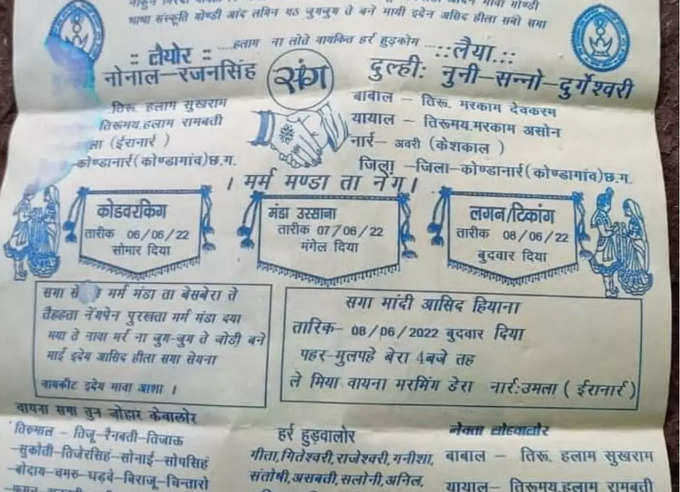 भाषा संस्कृति गोण्डी आंद लयिन पठ जुगजुग ते बने मायी इदेन आसिद हीला सबो सगा
हलाम ना लोते वायकित हर्र हुड़कोम
:: लैयोर ::
नोनाल-रजनसिंह
संग
::लैया.::
दुल्ही: नुनी-सन्नो-दुर्गेश्वरी
तिरू. हलाम सुखराम
तिरूमय.हलाम रामबती
ला (ईरानार्र )
कोण्डानार्र(कोण्डागांव)छ.ग.
बाबाल - तिरू. मरकाम देवकरण
यायाल - तिरूमय.मरकाम असोन
नार्र- अवरी (केशकाल )
जिला -जिला-कोण्डानार्र(कोण्डागांव)छ.ग.
। मर्म मण्डा ता नेंग।
कोडवरकिंग
तारीक 06/06/22
सोमार दिया
मंडा उरसाना
तारीक 07/06/22
मंगेल दिया
लगन/टिकांग
तारीक 08/06/22
बुदवार दिया
सगा से मर्म मंडा ता बेसबेरा ते
तैहता नेंगपेन पुरखता मर्म मंडा दया
मया ते नावा मर्र ना जुग-जुग ते जोड़ी बने
माई इदेय आसिद हीला सगा सेयना
वायकीट इदेय मावा आशा ।
सगा मांदी आसिद हियाना
तारिक- 08/06/2022 बुदवार दिया
पहर-मुलपहे बेरा 4बजे तह
ले मिया वायना मरमिंग डेरा नार्र:उमला ( ईरानार्र )
वायना सगा वुन जोहार केवालोर
तिरुमाल - तिजू-रैनबती-तिजाऊ
-सुकोती-तिजेरसिंह-सोनाई-सोपसिंह
-बोदाय-चमरू-घड़वे-बिराजू-चिन्तारो
हर्र हुड़वालोर
गीता,गितेश्वरी,राजेश्वरी,मनीशा,
संतोषी,असबती,सलोनी,अनिल,
नेवता लोहवालोर
बाबाल - तिरू. हलाम सुखराम
यायाल- तिरूमय.हलाम रामबती